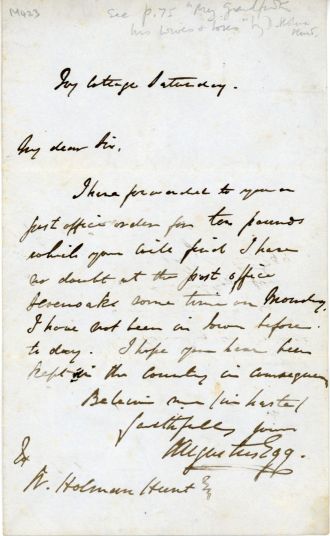 M423
See p.75 "My grandfather
his wives & loves" by D Holman
Hunt.
Ivy Cottage Saturday.
My dear Sir,
I have forwarded to you a
post office order for ten pounds
which you will find I have
no doubt at the post office
Sevenoaks some time on Monday.
I have not been in town before
to day. I hope you have been
kept in the country in consequence
Believe me (in haste)
faithfully yours
Augustus Egg.
W. Holman Hunt Esq